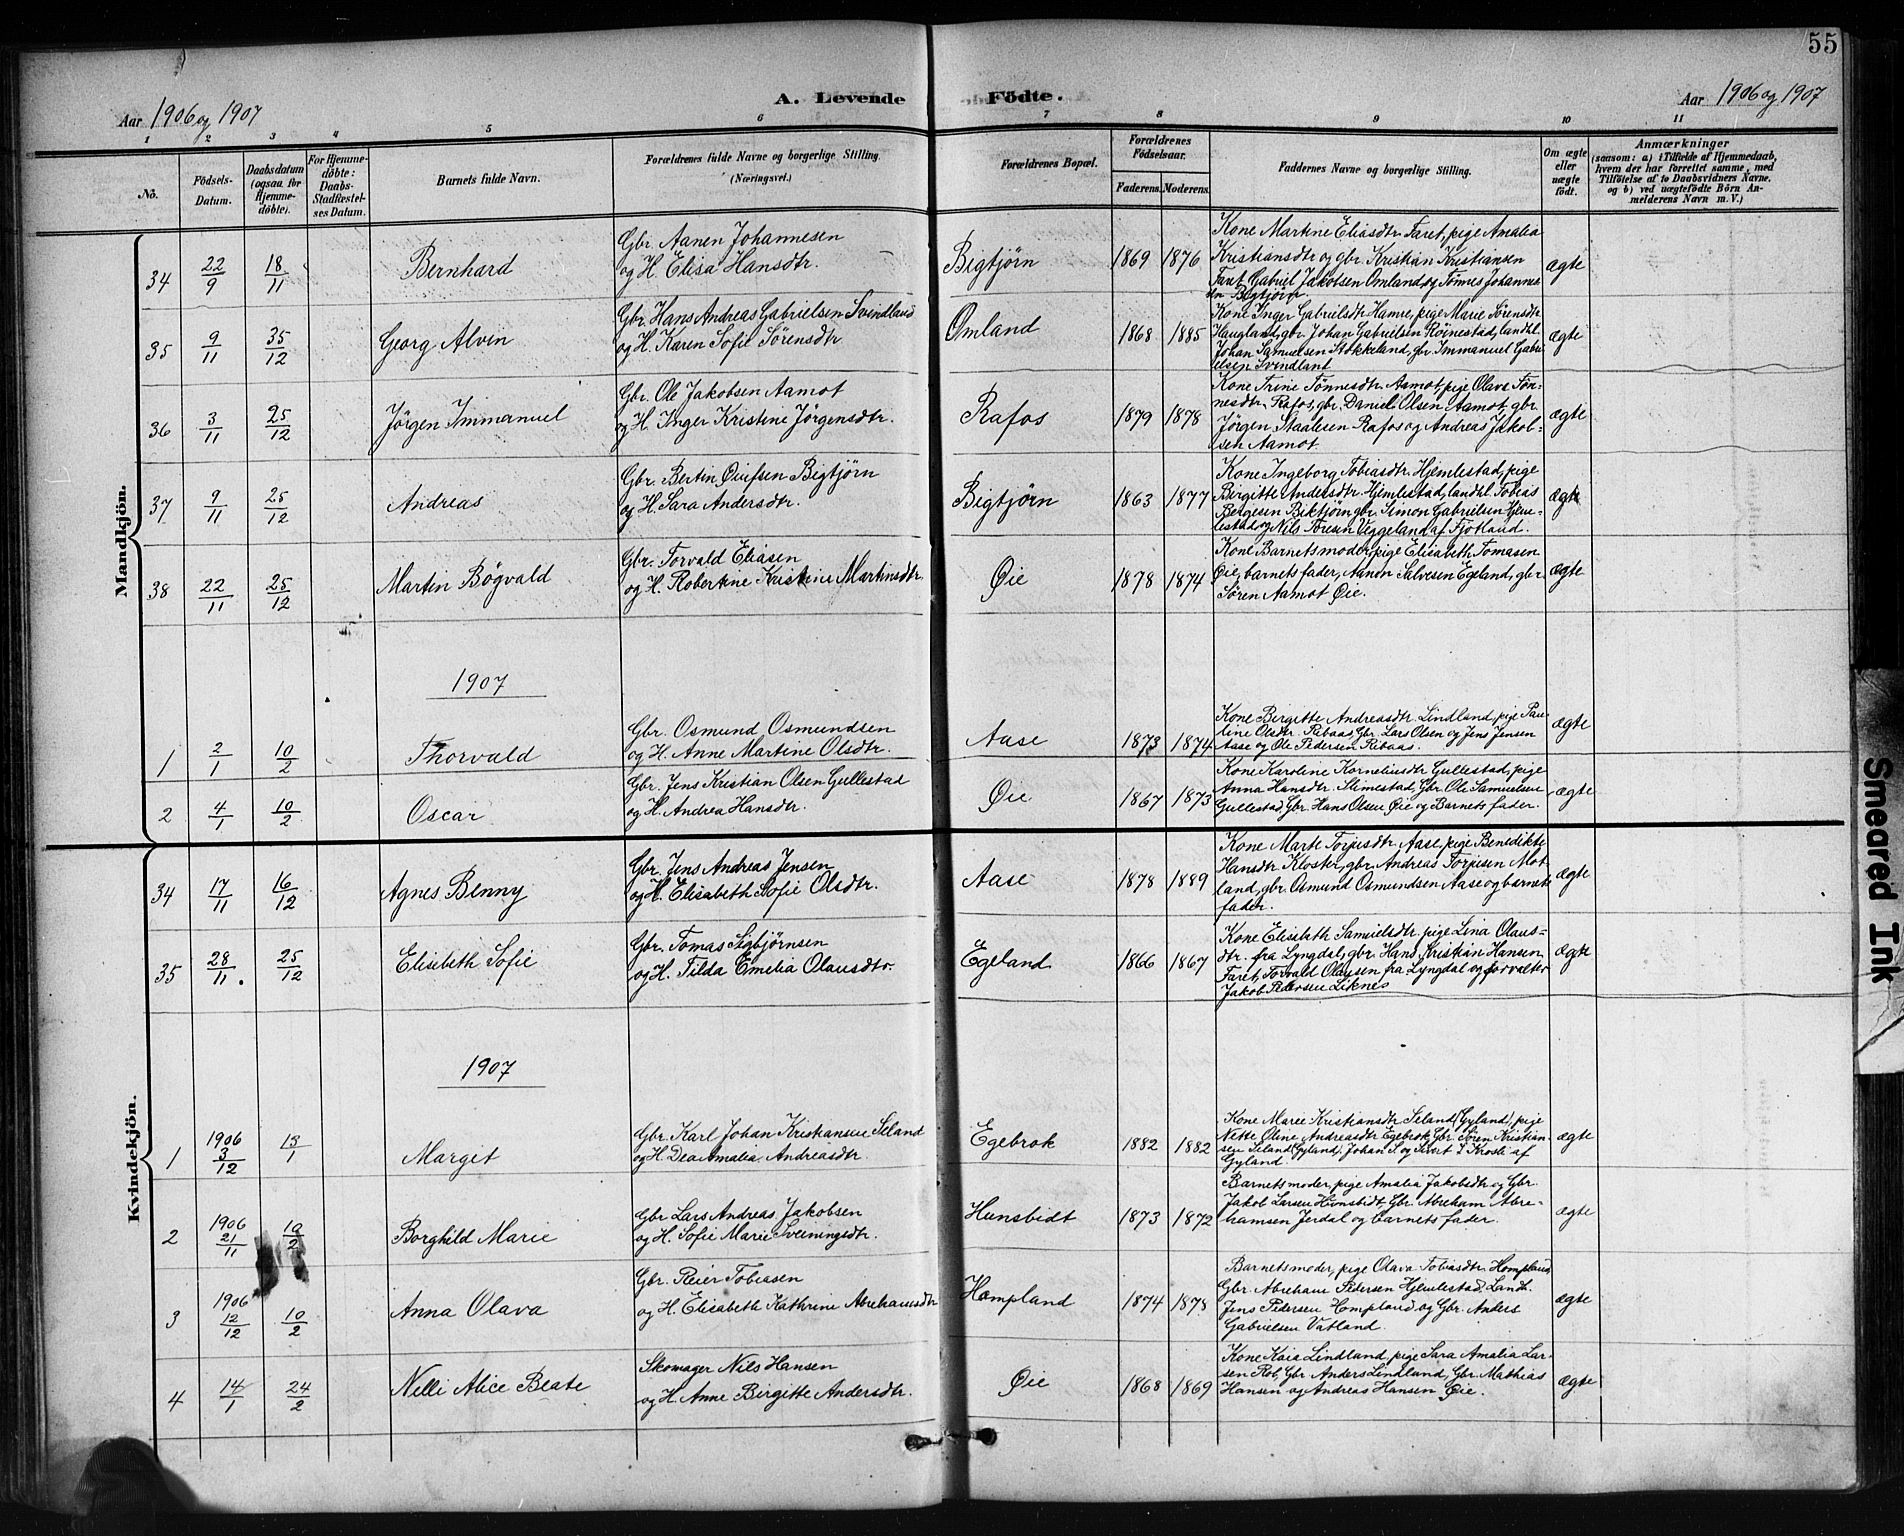 55
Aar 1906 og 1907
A. Levende Födte.
Aar 1906 og 1907
1 2 3 4 5 6 7 8 9 10 11
No.
Födsels-Datum.
Daabsdatum (ogsaa for Hjemmedöbte).
For Hjemmedöbte: Daabs-Stadfestelses Datum.
Barnets fulde Navn.
Forældrenes fulde Navne og borgerlige Stilling. (Næringsvei.)
Forældrenes Bopæl.
Forældrenes Födselsaar.
Faderens. Moderens.
Faddernes Navne og borgerlige Stilling.
Om ægte eller uægte födt.
Anmærkninger
(saasom: a) i Tilfælde af Hjemmedaab, hvem der har forrettet samme, med Tilföielse af to Daabsvidners Navne, og b) ved uægtefödte Börn Anmelderens Navn m. V.)
Mandkjön.
34 22/9 18/11 Bernhard
Gbr. Aanen Johannesen
og H. Elisa Hansdtr.
Bigtjørn 1869 1876
Kone Martine Eliasdtr. Faret, pige Amalia
Kristiansdtr og gbr. Kristian Kristiansen
Faret, Gabriel Jakobsen Omland, og Tønnes Johanne-
sen Bigtjörn
ægte
35 9/11 35/12 Georg Alvin
Gbr. Hans Andreas Gabrielsen Svindland
og H. Karen Sofie Sörensdtr
Omland 1868 1885
Kone Inger Gabrielsdtr Hamre, pige Marie Sörensdtr
Haugland, gbr. Johan Gabrielsen Röinestad, landhl.
Johan Samuelsen Stokkeland, gbr. Immanuel Gabri-
elsen Svindland
ægte
36 3/11 25/12 Jörgen Immanuel
Gbr. Ole Jakobsen Aamot
og H. Inger Kristine Jörgensdtr.
Rafos 1879 1878
Kone Trine Tönnesdtr. Aamot, pige Olava Tøn-
nesdtr. Rafos, gbr. Daniel Olsen Aamot, gbr.
Jörgen Staalesen Rafos og Andreas Jakob-
sen Aamot
ægte
37 9/11 25/12 Andreas
Gbr. Bertin Øiufsen Bigtjørn
og H. Sara Andersdtr.
Bigtjørn 1863 1877
Kone Ingeborg Tobiasdtr. Hjemlestad, pige
Birgitte Andersdtr Hjemlestad, landhl Tobias
Bergesen Biktjörn gbr. Simon Gabrielsen Gjem-
lestad og Nils Toresen Veggeland af Fjotland.
ægte
38 22/11 25/12 Martin Bögvald
Gbr. Torvald Eliasen
og H. Robertine Kristine Martinsdtr.
Øie 1878 1874
Kone Barnets moder, pige Elisabeth Tomasen
Øie, barnets fader, Aanon Salvesen Egeland, gbr.
Sören Aamot Øie.
ægte
1907
1 2/1 10/2 Thorvald
Gbr. Osmund Osmundsen
og H. Anne Martine Olsdtr.
Aase 1873 1874
Kone Birgitte Andreasdtr. Lindland, pige Pau-
line Olsdtr. Risaas, Gbr. Lars Olsen og Jens Jensen
Aase og Ole Pedersen Risaas.
ægte
2 4/1 10/2 Oscar
Gbr. Jens Kristian Olsen Gullestad
og H. Andrea Hansdtr.
Øie 1867 1873
Kone Karoline Korneliusdtr Gullestad, pige
Anna Hansdtr. Slimestad, Gbr. Ole Samuelsen
Gullestad, Gbr. Hans Olsen Øie og Barnets fader.
ægte
Kvindekjön.
34 17/11 16/12 Agnes Benny
Gbr. Jens Andreas Jensen
og H. Elisabeth Sofie Olsdtr.
Aase 1878 1889
Kone Marte Torjusdtr Aase, pige Benedikte
Hansdtr Kloster, gbr Andreas Torjusen Mot-
land, gbr. Osmund Osmundsen Aase og barnets
fader.
ægte
35 28/11. 25/12 Elisebeth Sofie
Gbr. Tomas Sigbjörnsen
og H. Tilda Emelia Olausdtr.
Egeland 1866 1867
Kone Elisebeth Samuelsdtr. pige Lina Olaus-
dtr. fra Lyngdal, gbr Hans Kristian Hansen
Faret, Torvald Olausen fra Lyngdal og forvalter
Jakob Pedersen Liknes
ægte
1907
1 1906 3/12 13/1 Margit
Gbr. Karl Johan Kristiansen Seland
og H. Dea Amalia Andreasdtr
Egebrok 1882 1882
Kone Maree Kristiansdtr Seland (Gyland), pige
Nette Oline Andreasdtr Egebrok Gbr. Sören Kristian-
sen Seland (Gyland). Johan S. og Sivert S Krosli af
Gyland.
ægte
2 1906 21/11 10/2 Borghild Marie
Gbr Lars Andreas Jakobsen
og H. Sofie Marie Sveiningsdtr.
Hunsbidt 1873 1872
Barnets moder, pige Amalia Jakobsdtr og Gbr.
Jakob Larsen Hunsbidt, Gbr. Abraham Abra-
hamsen Jerdal og barnets fader.
ægte
3 1906 12/12 10/2 Anna Olava
Gbr. Reier Tobiasen
og H. Elisabeth Kathrine Abrahamsdtr
Hompland 1874 1878
Barnets moder, pige Olava Tobiasdtr. Hompland,
Gbr. Abraham Pedersen Hjemlestad, Landh.
Jens Pedersen Hompland og Gbr. Anders
Gabrielsen Vatland.
ægte
4 14/1 24/2 Nelli Alice Beate
Skomager Nils Hansen
og H. Anne Birgitte Andersdtr.
Øie 1868 1869
Kone Kaia Lindland, pige Sara Amalia Lar-
sen Rob, Gbr. Anders Lindland, Gbr. Mathias
Hansen og Andreas Hansen Øie.
ægte
Smeared Ink